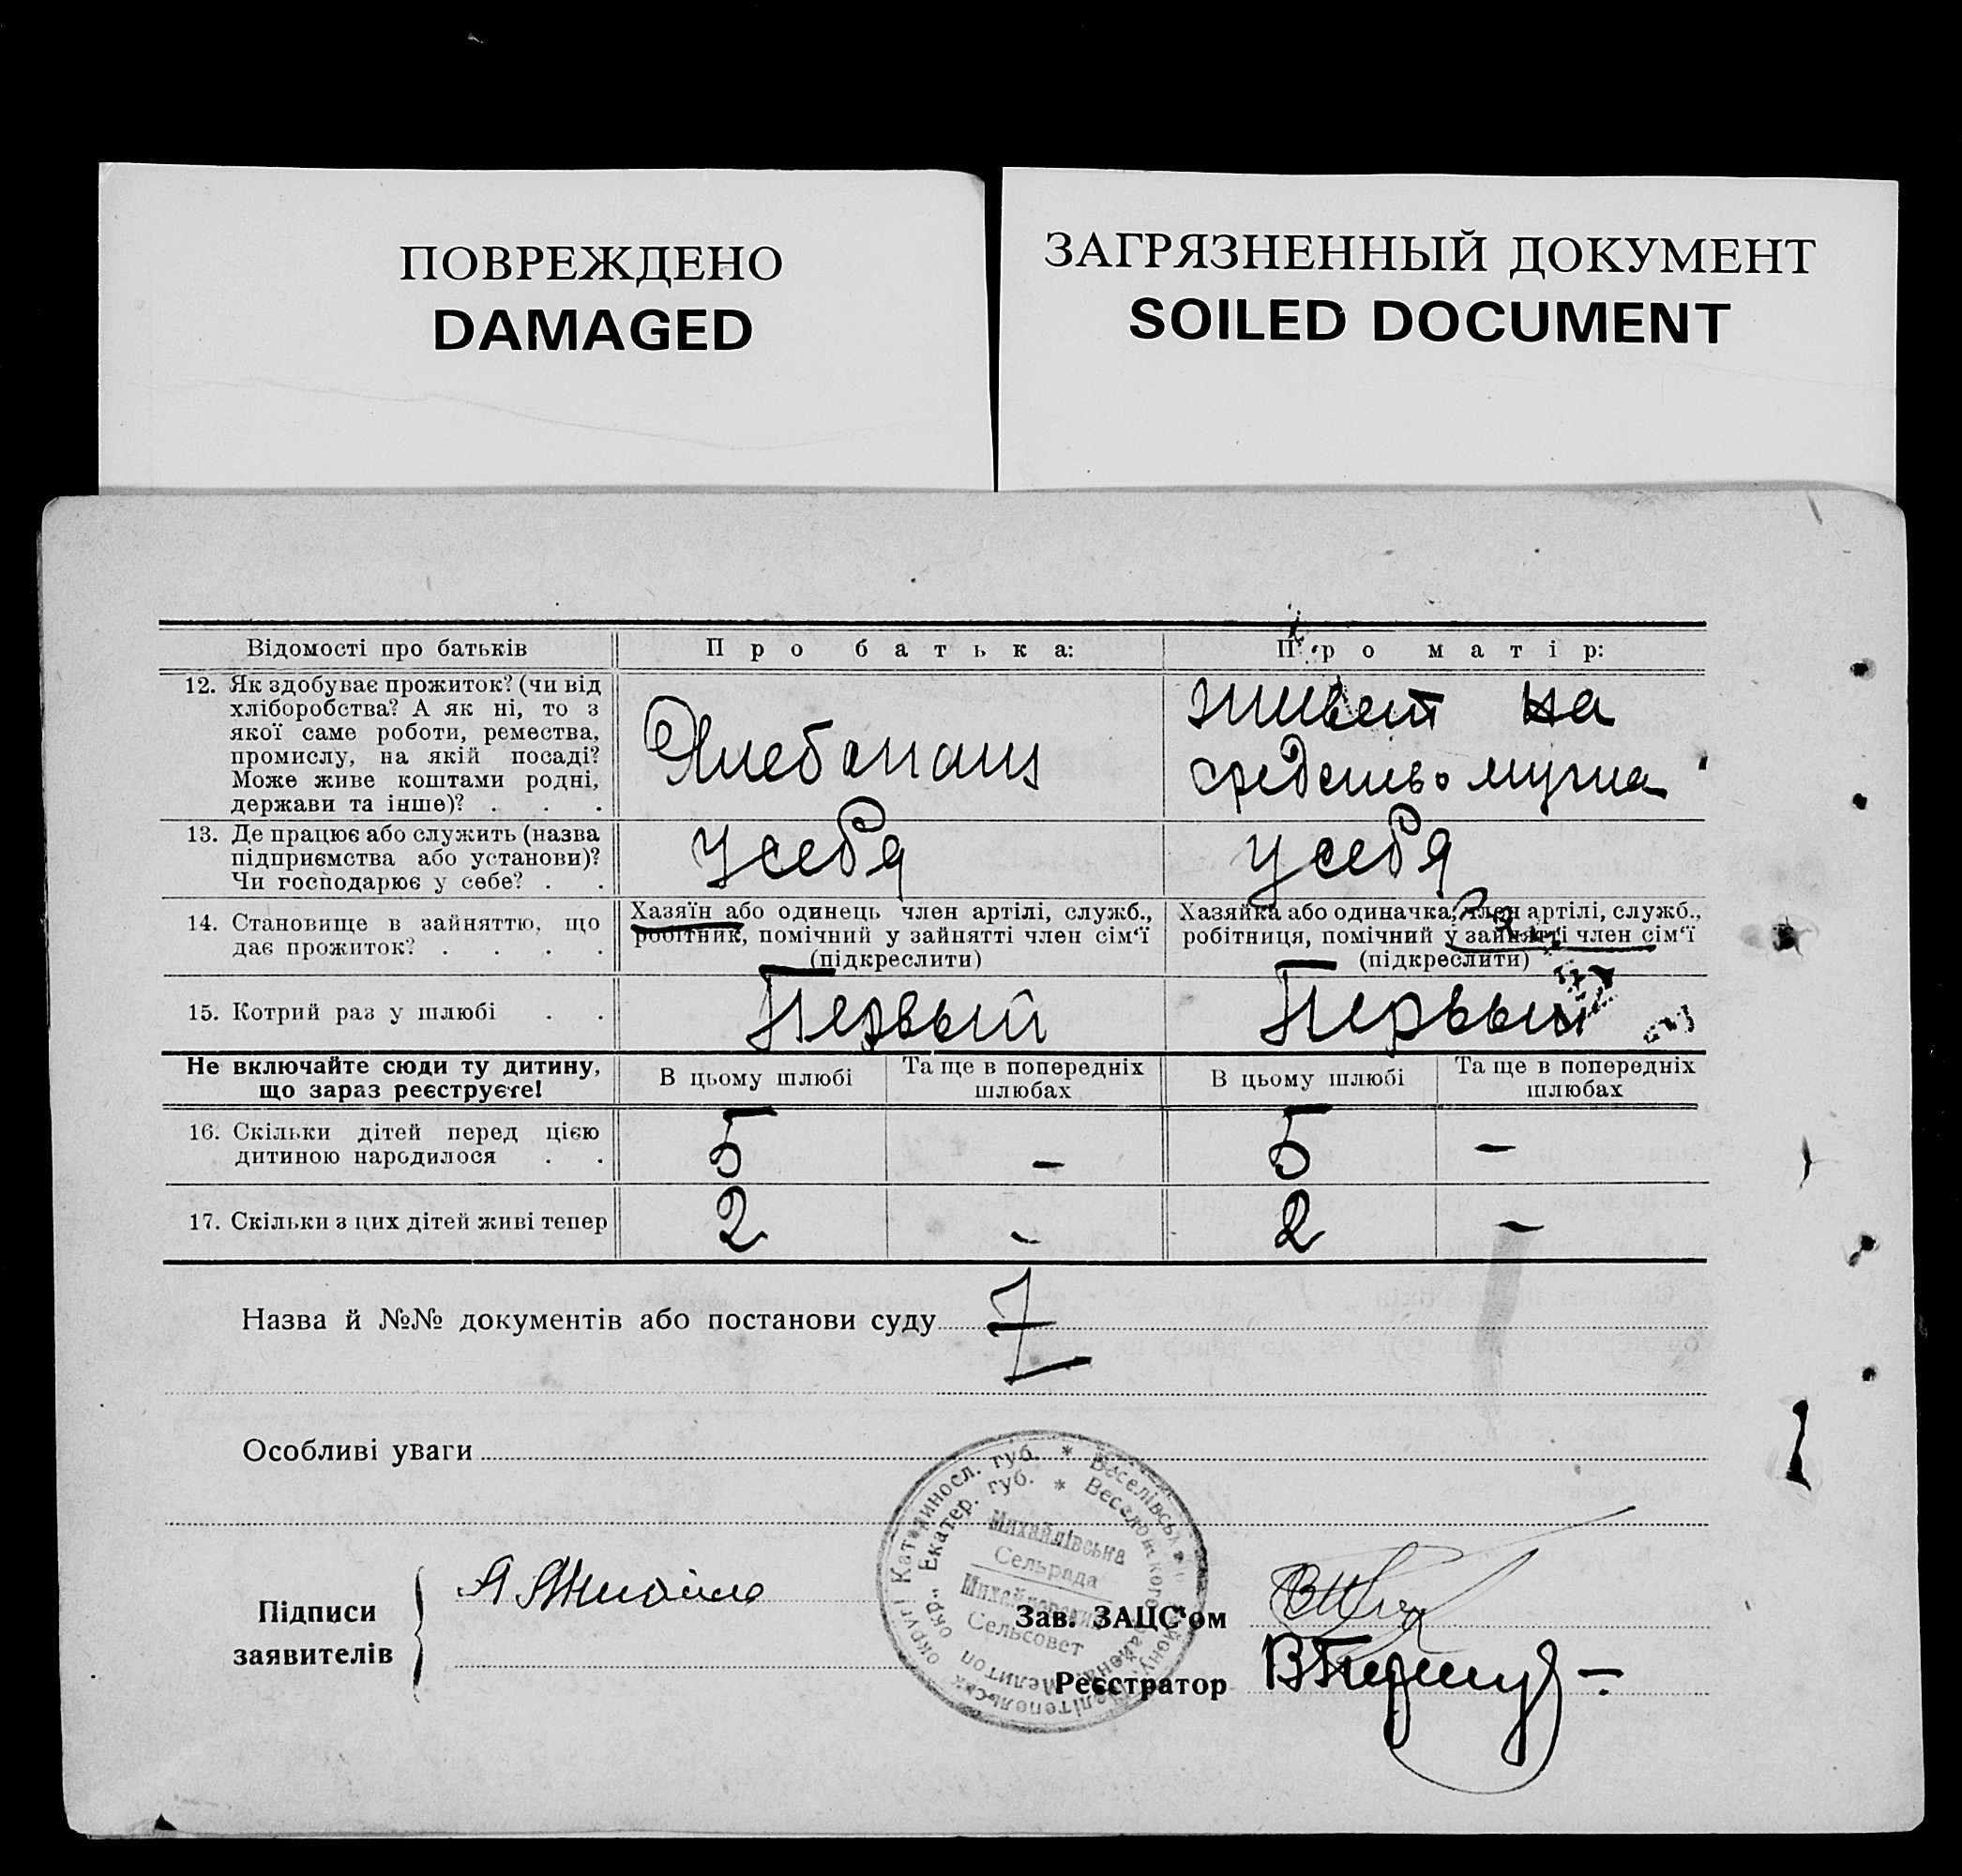 ПОВРЕЖДЕНО
DAMAGED
ЗАГРЯЗНЕННЫЙ ДОКУМЕНТ
SOILED DOCUMENT
Відомості про батьків
Про батька:
Про матір:
12. Як здобуває прожиток? (чи від
хліборобства? А як ні, то з
якої саме роботи, ремества,
промислу, на якій посаді?
Може живе коштами родні,
держави та інше)? . . .
Хлебопашц
живет на
средство мужа
13. Де працює або служить (назва
підприємства або установи)?
Чи господарює у себе? . .
у себя
у себя
14. Становище в зайняттю, що
дає прожиток? . . . .
Хазяїн або одинець член артілі, служб.,
робітник, помічний у зайнятті член сім‘ї
(підкреслити)
Хазяйка або одиначка, член артілі, служб.,
робітниця, помічний у зайнятті член сім‘ї
(підкреслити)
15. Котрий раз у шлюбі . .
Первый
Первый
Не включайте сюди ту дитину,
що зараз реєструєте!
В цьому шлюбі
Та ще в попередніх
шлюбах
В цьому шлюбі
Та ще в попередніх
шлюбах
16. Скільки дітей перед цією
дитиною народилося . .
5
–
5
–
17. Скільки з цих дітей живі тепер
2
–
2
–
Назва й №№ документів або постанови суду
Особливі уваги
Катериносл. губ. * Веселівськ району, Мелітопольськ округі
Екатер. губ. * Веселовского района Мелитоп окр.
Михайлівська
Сельрада
Михайловский
Сельсовет
Підписи
заявителів
Зав. ЗАЦС‘ом
Реєстратор